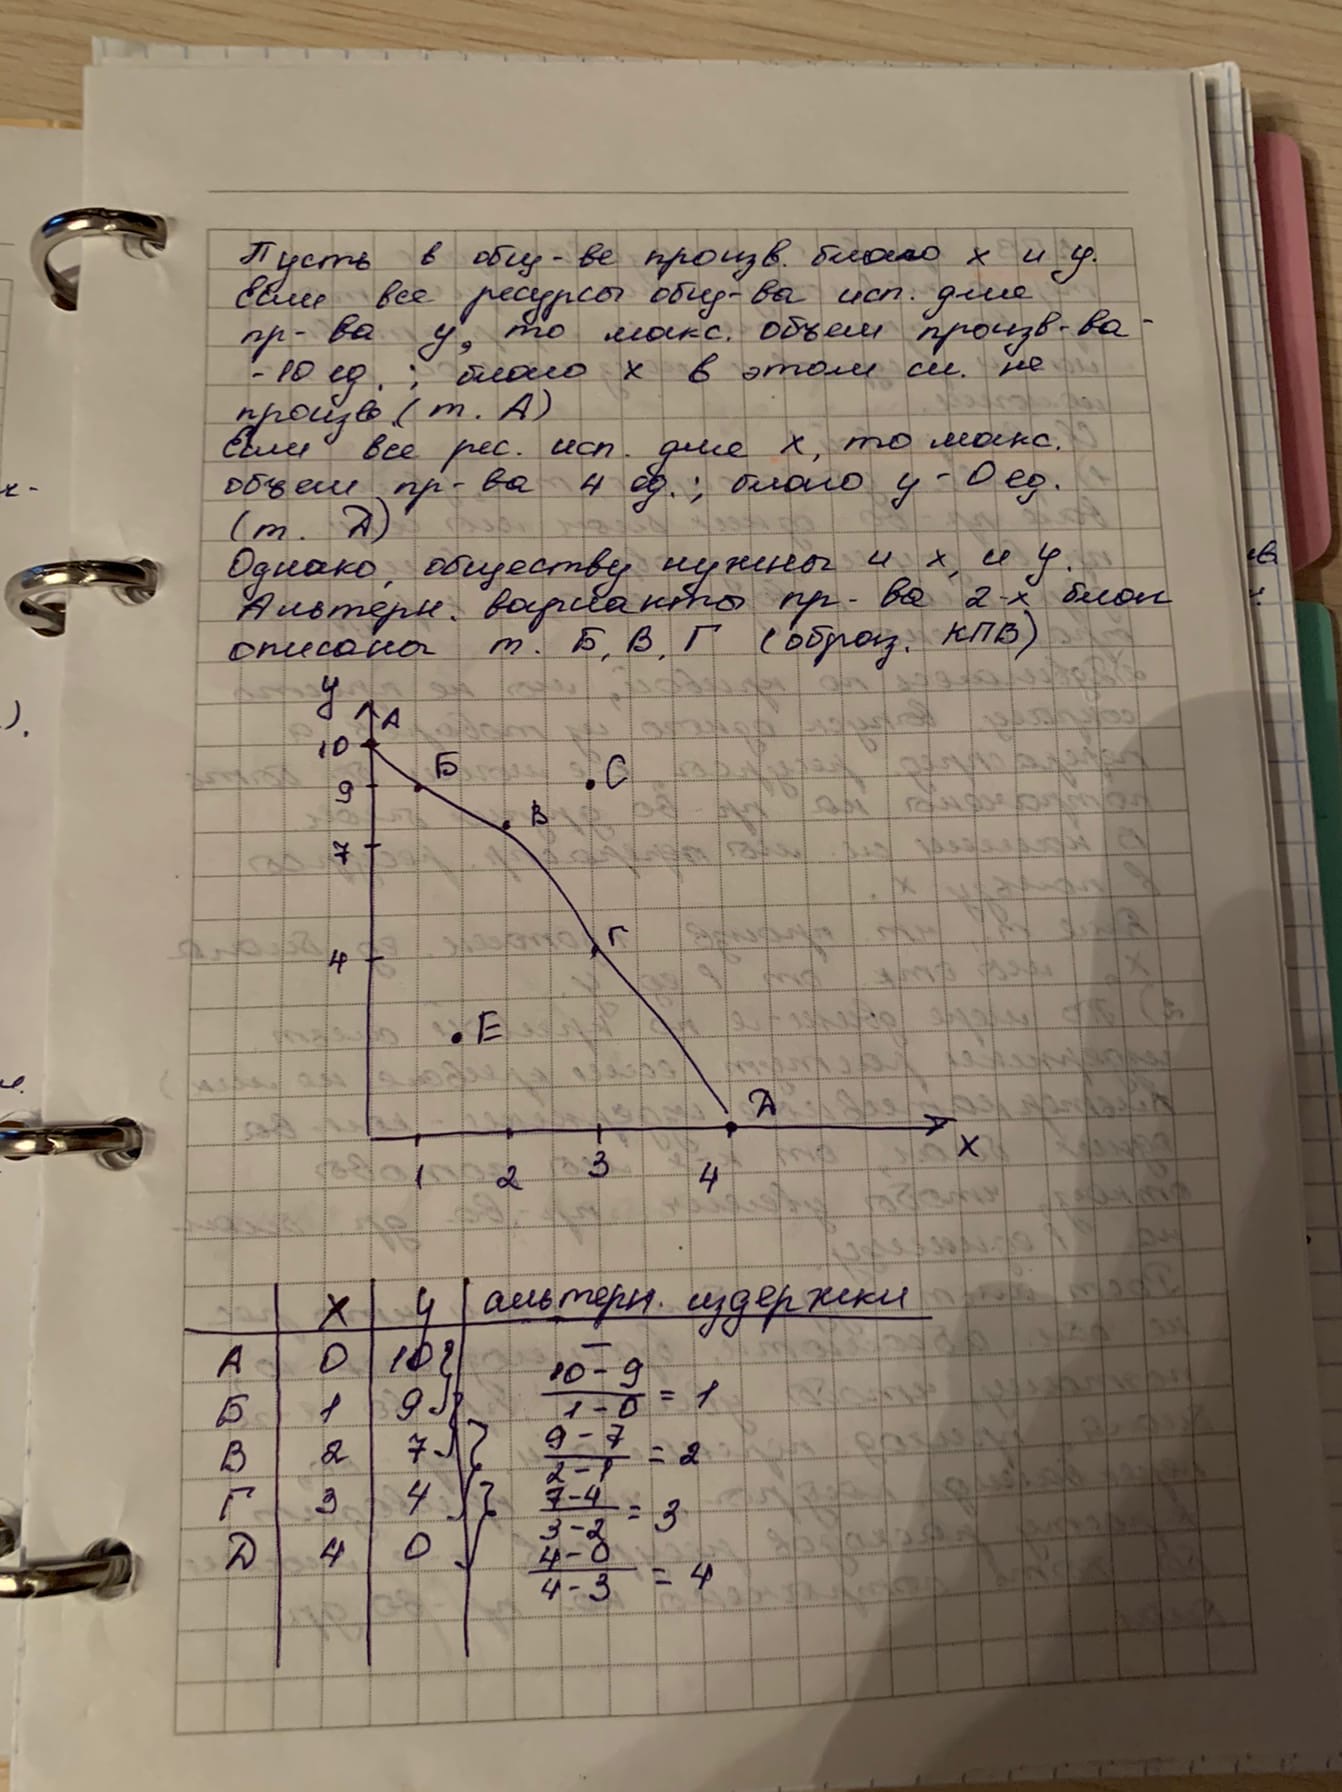 Пусть в общ-ве произв. благо x и y.
Если все ресурсы общ-ва исп. для
пр-ва y, то макс. объем произв-ва -
- 10 ед.; благо x в этом сл. не
произв. (т. А)
Если все рес. исп. для x, то макс.
объем пр-ва 4 ед.; благо y - 0 ед.
(т. Д)
Однако, обществу нужны и x, и y.
Альтерн. варианты пр-ва 2-х благ
описаны т. Б, В, Г (образ. КПВ)
y
А
10
Б
9
С
В
7
Г
4
Е
Д
x
1 2 3 4
x y альтерн. издержки
А 0 10 —
Б 1 9 10-9/1-0 = 1
В 2 7 9-7/2-1 = 2
Г 3 4 7-4/3-2 = 3
Д 4 0 4-0/4-3 = 4